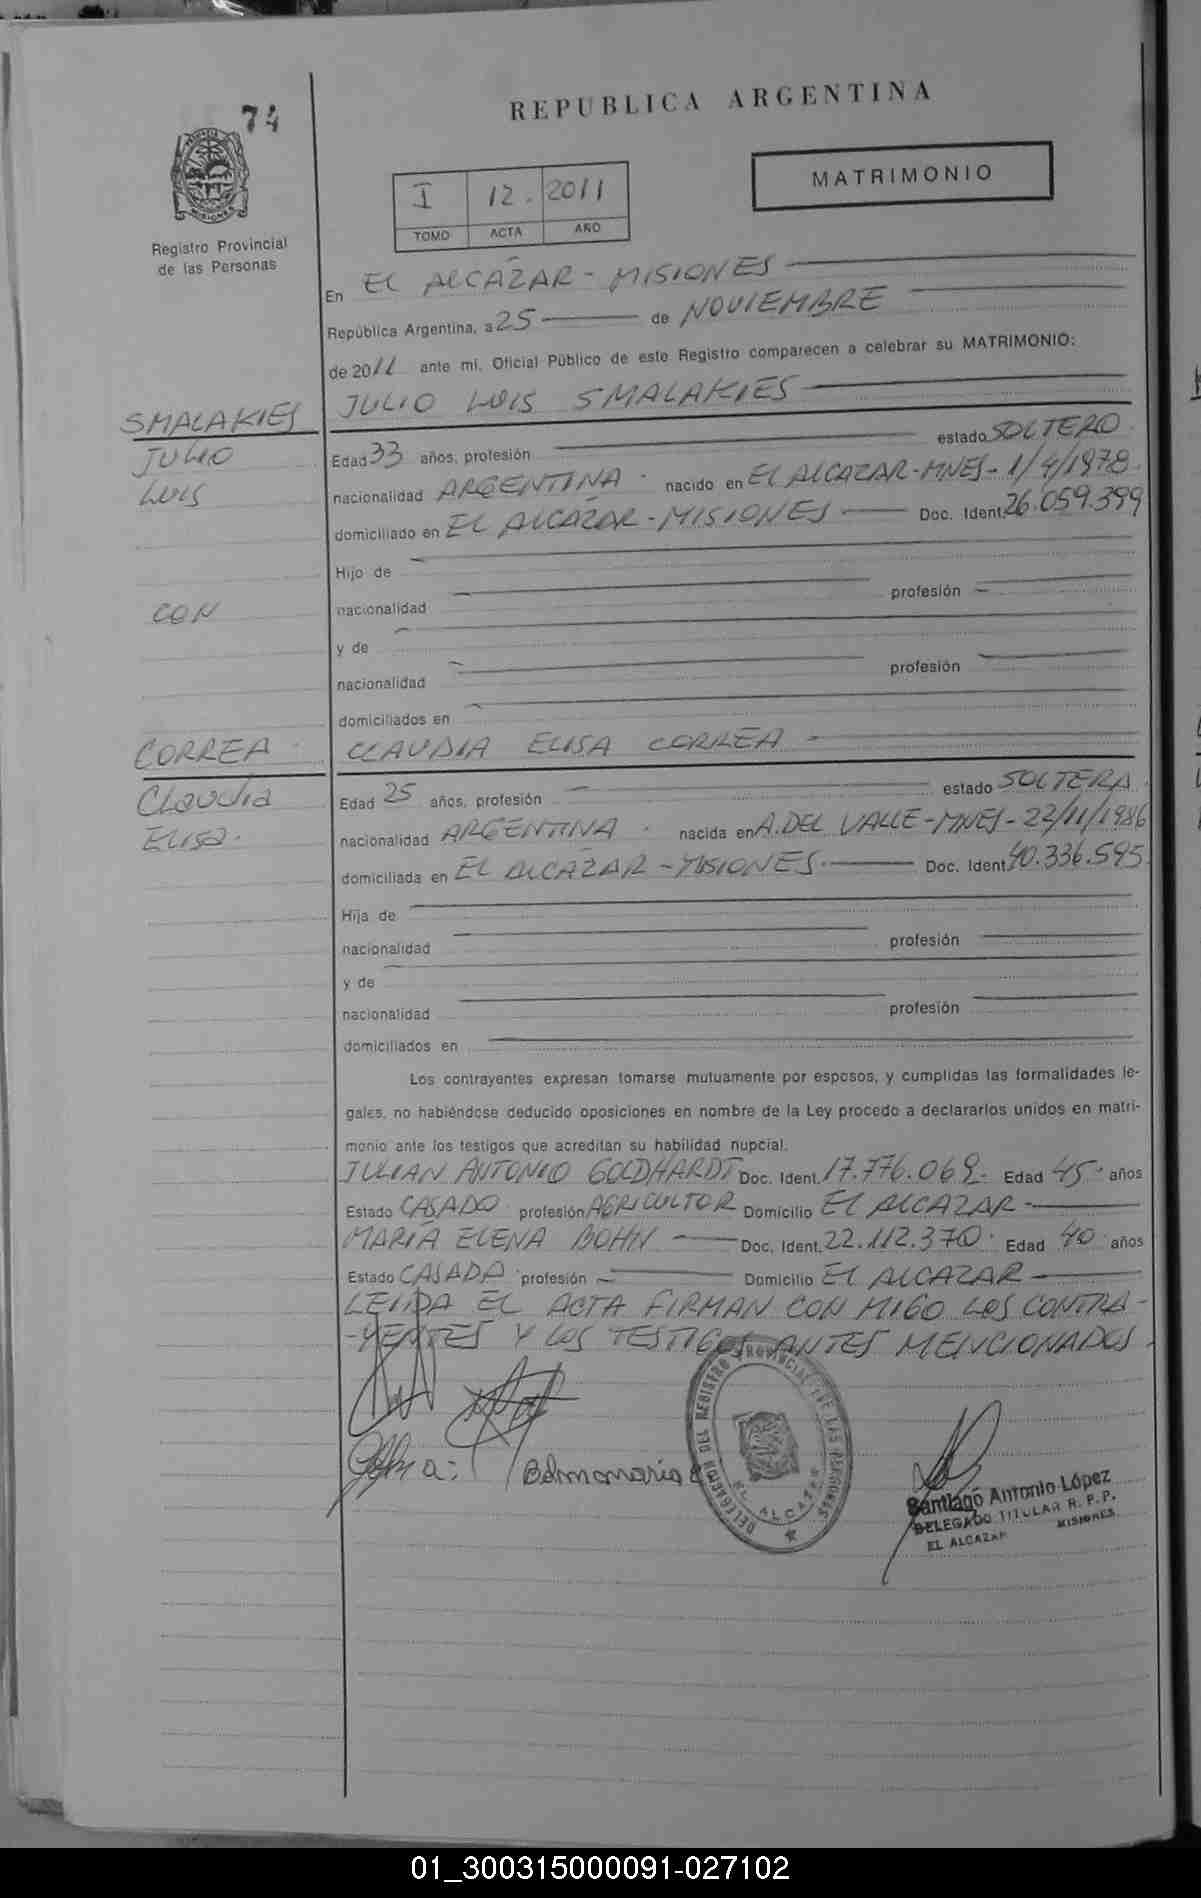 74
REPUBLICA ARGENTINA
MATRIMONIO
I 12. 2011
TOMO ACTA AÑO
PROVINCIA MISIONES
Registro Provincial
de las Personas
En EL ALCÁZAR - MISIONES
República Argentina, a 25 de NOVIEMBRE
de 2011 ante mi, Oficial Público de este Registro comparecen a celebrar su MATRIMONIO:
SMALAKIES JULIO LUIS SMALAKIES
JULIO Edad 33 años, profesión estado SOLTERO.
LUIS nacionalidad ARGENTINA. nacido en EL ALCAZAR-MNES- 1/4/1978.
domiciliado en EL ALCÁZAR - MISIONES Doc. Ident. 26.059.399
Hijo de
CON nacionalidad profesión
y de
nacionalidad profesión
domiciliados en
CORREA. CLAUDIA ELISA CORREA -
Claudia Edad 25 años, profesión estado SOLTERA.
ELISA. nacionalidad ARGENTINA. nacida en A. DEL VALLE-MNES- 22/11/1986
domiciliada en EL ALCÁZAR - MISIONES. Doc. Ident. 40.336.595.
Hija de
nacionalidad profesión
y de
nacionalidad profesión
domiciliados en
Los contrayentes expresan tomarse mutuamente por esposos, y cumplidas las formalidades le-
gales, no habiéndose deducido oposiciones en nombre de la Ley procedo a declararlos unidos en matri-
monio ante los testigos que acreditan su habilidad nupcial.
JULIAN ANTONIO GOLDHARDT Doc. Ident. 17.776.069- Edad 45. años
Estado CASADO. profesión AGRICULTOR Domicilio EL ALCAZAR-
MARÍA ELENA BOHN Doc. Ident. 22.112.370. Edad 40 años
Estado CASADA. profesión Domicilio EL ALCAZAR
LEIDA EL ACTA FIRMAN CON MIGO LOS CONTRA-
-YENTES Y LOS TESTIGOS ANTES MENCIONADOS.
DELEGACION DEL REGISTRO PROVINCIAL DE LAS PERSONAS
EL ALCAZAR
Santiago Antonio López
DELEGADO TITULAR R. P. P.
EL ALCAZAR MISIONES
01_300315000091-027102